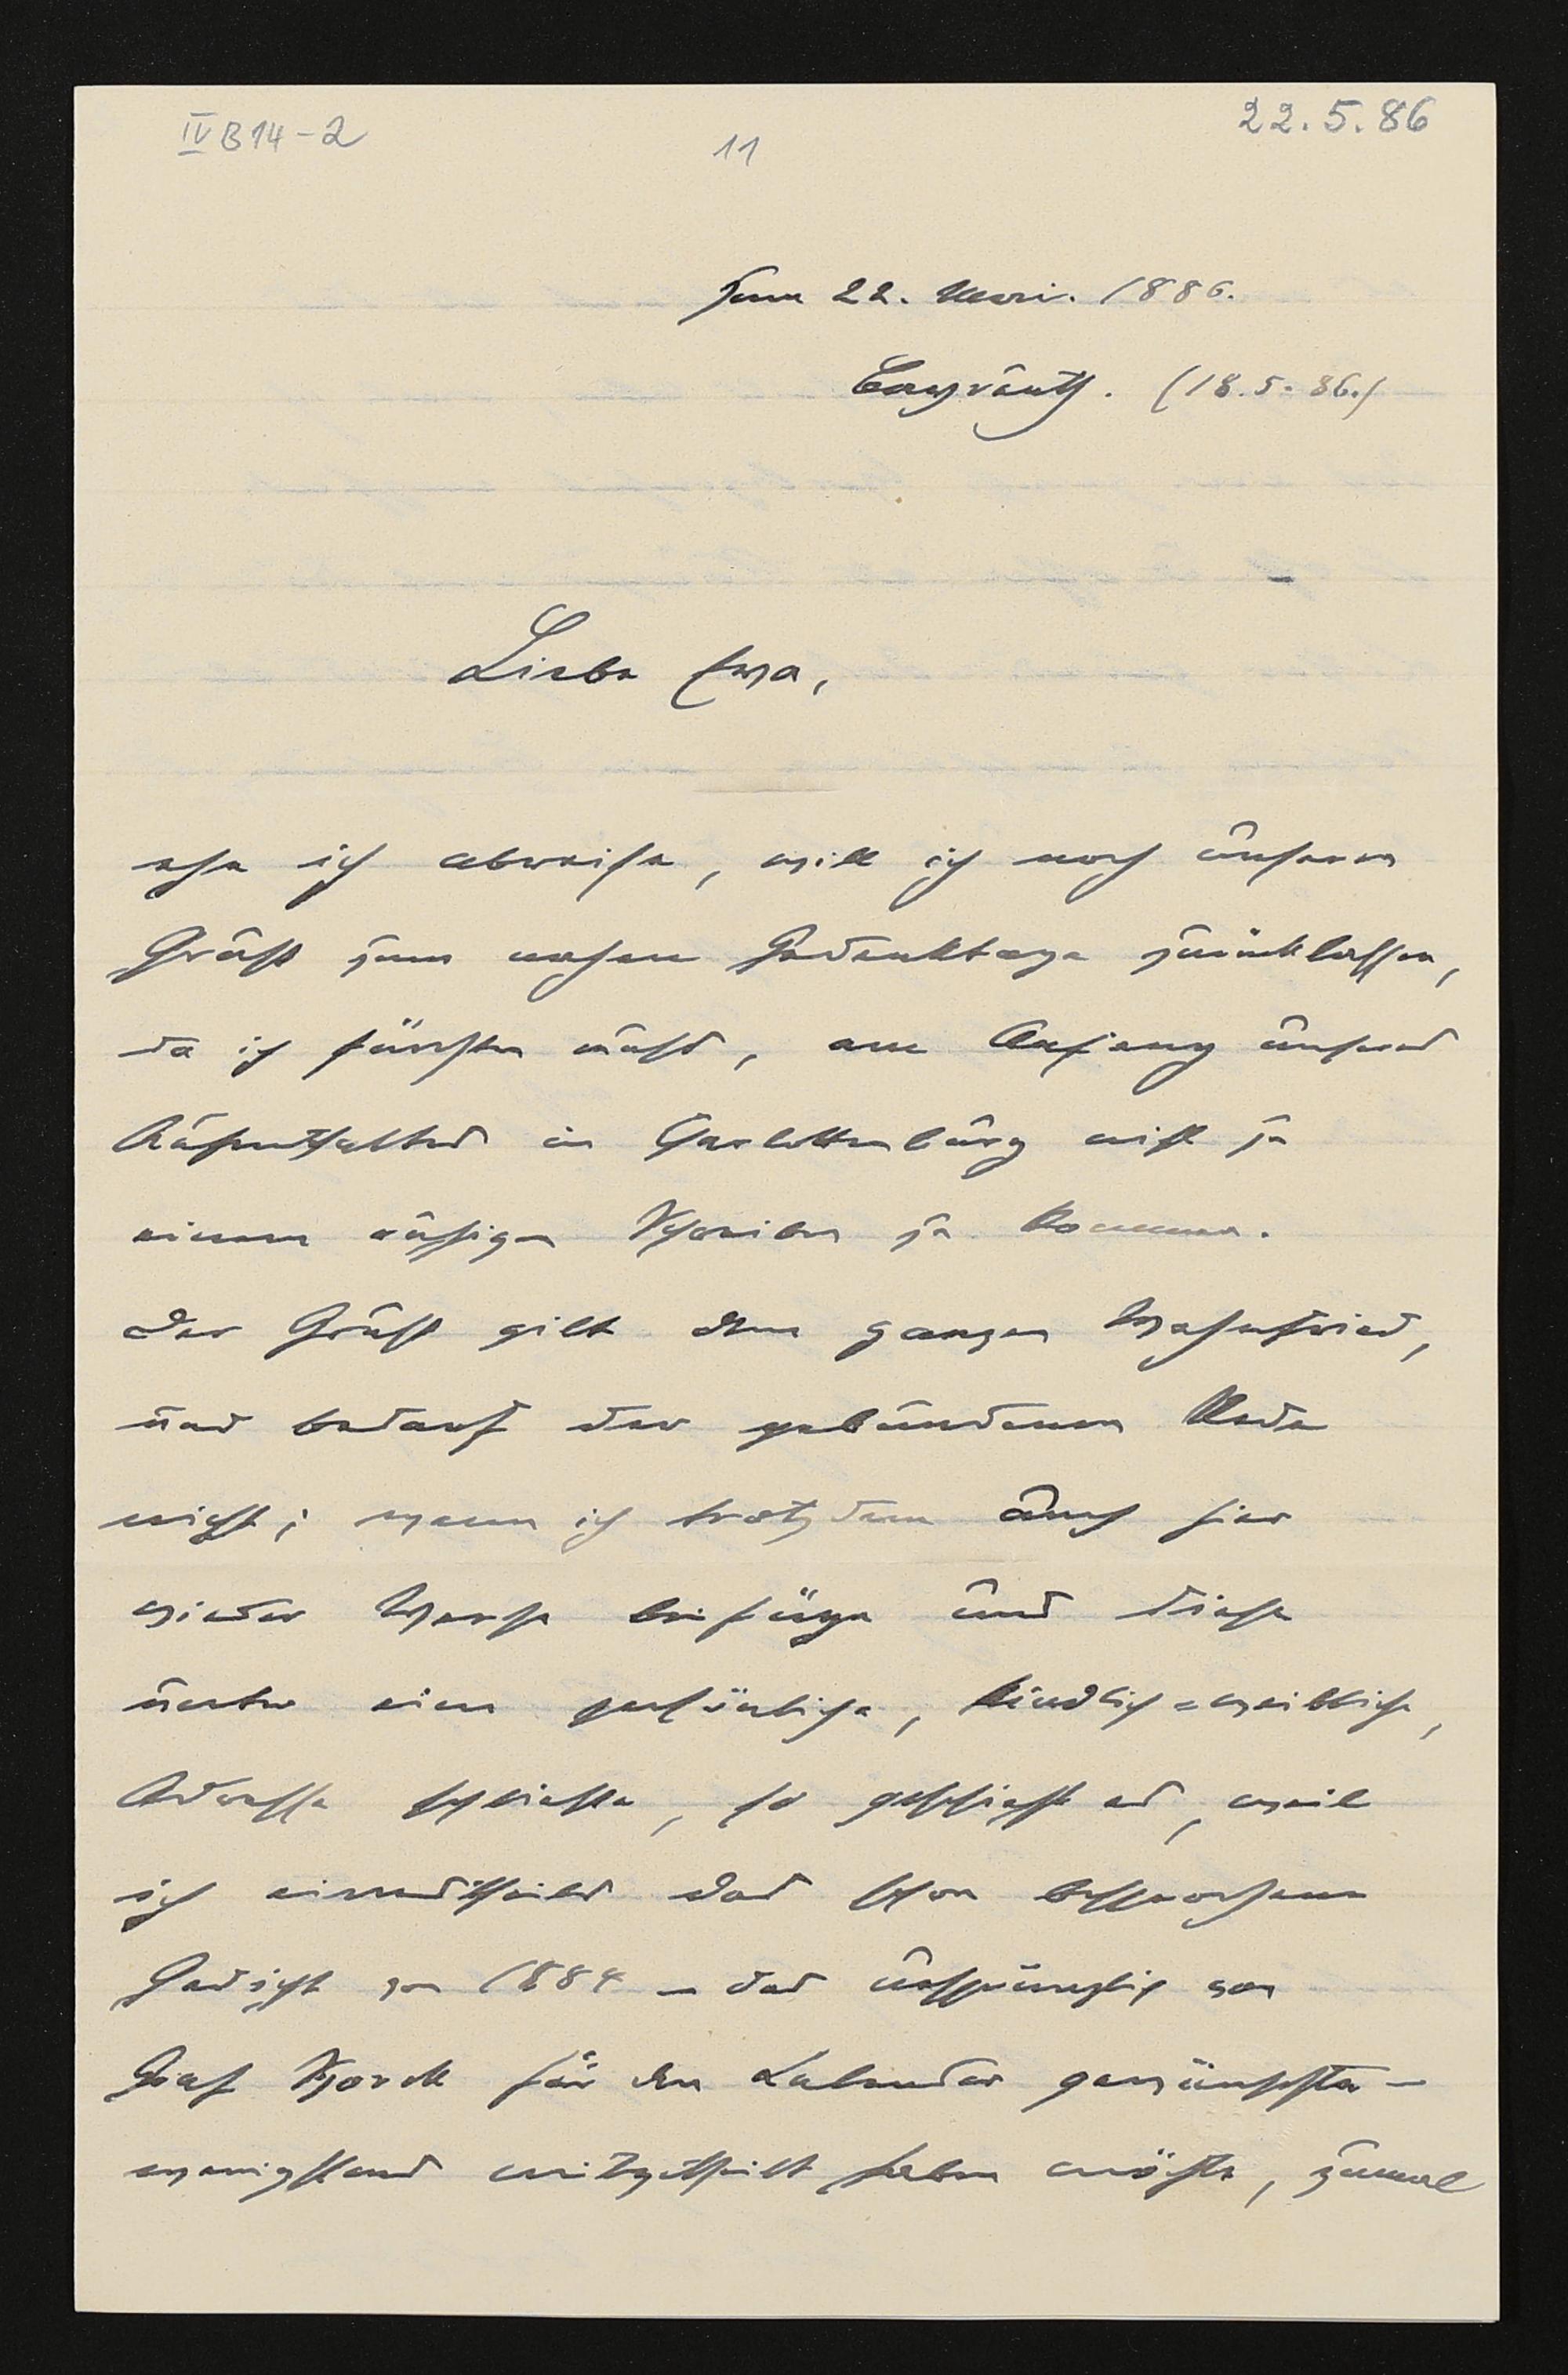 IV B 14 - 2
11
22.5.86
Zum 22. Mai. 1886.
Bayreuth. (18.5.86.)
Liebe Eva,
ehe ich abreise, will ich noch unseren
Gruß zum nahen Gedenktage zurücklassen,
da ich fürchten muß, am Anfang unseres
Aufenthaltes in Charlottenburg nicht zu
einem ruhigen Schreiben zu kommen.
Der Gruß gilt dem ganzen Wahnfried,
und bedarf der gebundenen Rede
nicht; wenn ich trotzdem auch hier
wieder Verse beifüge und diese
unter eine persönliche, kindlich=weibliche,
Adresse schließe, so geschieht es, weil
ich einestheils das schon besprochene
Gedicht von 1884 – das ursprünglich von
Graf Sporck für den Kalender gewünschte –
wenigstens mitgetheilt haben möchte, zumal